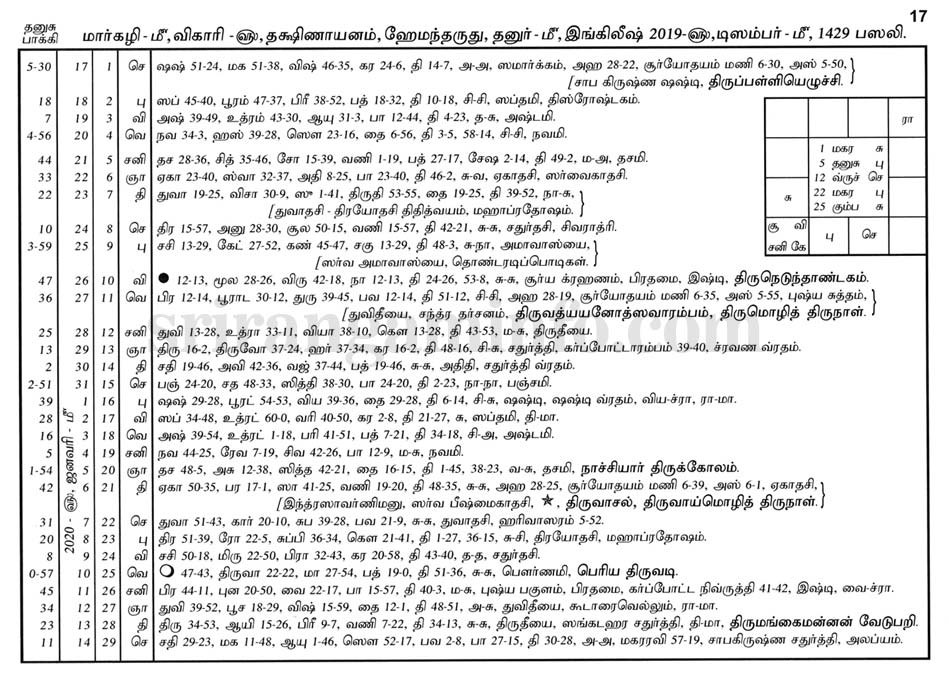 17
தனுசு
பாக்கி
மார்கழி - மீ”, விகாரி - ௵, தக்ஷிணாயனம், ஹேமந்தருது, தனுர் - மீ”, இங்கிலீஷ் 2019-௵, டிஸம்பர் - மீ”, 1429 பஸலி.
5-30 17 1 செ ஷஷ் 51-24, மக 51-38, விஷ் 46-35, கர 24-6, தி 14-7, அ-அ, ஸமார்க்கம், அஹ 28-22, சூர்யோதயம் மணி 6-30, அஸ் 5-50,
[சாப கிருஷ்ண ஷஷ்டி, திருப்பள்ளியெழுச்சி.
18 18 2 பு ஸப் 45-40, பூரம் 47-37, பிரீ 38-52, பத் 18-32, தி 10-18, சி-சி, ஸப்தமி, திஸ்ரோஷ்டகம்.
7 19 3 வி அஷ் 39-49, உத்ரம் 43-30, ஆயு 31-3, பா 12-44, தி 4-23, த-சு, அஷ்டமி.
4-56 20 4 வெ நவ 34-3, ஹஸ் 39-28, ஸௌ 23-16, தை 6-56, தி 3-5, 58-14, சி-சி, நவமி.
44 21 5 சனி தச 28-36, சித் 35-46, சோ 15-39, வணி 1-19, பத் 27-17, சேஷ 2-14, தி 49-2, ம-அ, தசமி.
33 22 6 ஞா ஏகா 23-40, ஸ்வா 32-37, அதி 8-25, பா 23-40, தி 46-2, சு-வ, ஏகாதசி, ஸர்வைகாதசி.
22 23 7 தி துவா 19-25, விசா 30-9, ஸு 1-41, திருதி 53-55, தை 19-25, தி 39-52, நா-சு,
[துவாதசி - திரயோதசி திதித்வயம், மஹாப்ரதோஷம்.
10 24 8 செ திர 15-57, அனு 28-30, சூல 50-15, வணி 15-57, தி 42-21, சு-சு, சதுர்தசி, சிவராத்ரி.
3-59 25 9 பு சசி 13-29, கேட் 27-52, கண் 45-47, சகு 13-29, தி 48-3, சு-நா, அமாவாஸ்யை,
[ஸர்வ அமாவாஸ்யை, தொண்டரடிப்பொடிகள்.
47 26 10 வி ● 12-13, மூல 28-26, விரு 42-18, நா 12-13, தி 24-26, 53-8, சு-சு, சூர்ய க்ரஹணம், பிரதமை, இஷ்டி, திருநெடுந்தாண்டகம்.
36 27 11 வெ பிர 12-14, பூராட 30-12, துரு 39-45, பவ 12-14, தி 51-12, சி-சி, அஹ 28-19, சூர்யோதயம் மணி 6-35, அஸ் 5-55, புஷ்ய சுத்தம்,
[துவிதீயை, சந்த்ர தர்சனம், திருவத்யயனோத்ஸவாரம்பம், திருமொழித் திருநாள்.
25 28 12 சனி துவி 13-28, உத்ரா 33-11, வியா 38-10, கௌ 13-28, தி 43-53, ம-சு, திருதீயை.
13 29 13 ஞா திரு 16-2, திருவோ 37-24, ஹர் 37-34, கர 16-2, தி 48-16, சி-சு, சதுர்த்தி, கர்ப்போட்டாரம்பம் 39-40, ச்ரவண வ்ரதம்.
2 30 14 தி சதி 19-46, அவி 42-36, வஜ் 37-44, பத் 19-46, சு-சு, அதிதி, சதுர்த்தி வ்ரதம்.
2-51 31 15 செ பஞ் 24-20, சத 48-33, ஸித்தி 38-30, பா 24-20, தி 2-23, நா-நா, பஞ்சமி.
39 1 16 பு ஷஷ் 29-28, பூரட் 54-53, விய 39-36, தை 29-28, தி 6-14, சி-சு, ஷஷ்டி, ஷஷ்டி வ்ரதம், விய-ச்ரா, ரா-மா.
28 2 17 வி ஸப் 34-48, உத்ரட் 60-0, வரி 40-50, கர 2-8, தி 21-27, சு, ஸப்தமி, தி-மா.
16 3 18 வெ அஷ் 39-54, உத்ரட் 1-18, பரி 41-51, பத் 7-21, தி 34-18, சி-அ, அஷ்டமி.
5 4 19 சனி நவ 44-25, ரேவ 7-19, சிவ 42-26, பா 12-9, ம-சு, நவமி.
1-54 5 20 ஞா தச 48-5, அசு 12-38, ஸித்த 42-21, தை 16-15, தி 1-45, 38-23, வ-சு, தசமி, நாச்சியார் திருக்கோலம்.
42 6 21 தி ஏகா 50-35, பர 17-1, ஸா 41-25, வணி 19-20, தி 48-35, சு-சு, அஹ 28-25, சூர்யதயம் மணி 6-39, அஸ் 6-1, ஏகாதசி,
[இந்த்ரஸாவர்ணிமனு, ஸர்வ பீஷ்மைகாதசி, ★, திருவாசல், திருவாய்மொழித் திருநாள்.
31 7 22 செ துவா 51-43, கார் 20-10, சுப 39-28, பவ 21-9, சு-சு, துவாதசி, ஹரிவாஸரம் 5-52.
20 8 23 பு திர 51-39, ரோ 22-5, சுப்பி 36-34, கௌ 21-41, தி 1-27, 36-15, சு-சி, திரயோதசி, மஹாப்ரதோஷம்.
8 9 24 வி சசி 50-18, மிரு 22-50, பிரா 32-43, கர 20-58, தி 43-40, த-த, சதுர்தசி.
0-57 10 25 வெ ○ 47-43, திருவா 22-22, மா 27-54, பத் 19-0, தி 51-36, சு-சு, பௌர்ணமி, பெரிய திருவடி.
45 11 26 சனி பிர 44-11, புன 20-50, வை 22-17, பா 15-57, தி 40-3, ம-சு, புஷ்ய பகுளம், பிரதமை, கர்ப்போட்ட நிவ்ருத்தி 41-42, இஷ்டி, வை-ச்ரா.
34 12 27 ஞா துவி 39-52, பூச 18-29, விஷ் 15-59, தை 12-1, தி 48-51, அ-சு, துவிதீயை, கூடாரைவெல்லும், ரா-மா.
23 13 28 தி திரு 34-53, ஆயி 15-26, பிரீ 9-7, வணி 7-22, தி 34-13, சு-சு, திருதீயை, ஸங்கடஹர சதுர்த்தி, தி-மா, திருமங்கைமன்னன் வேடுபறி.
11 14 29 செ சதி 29-23, மக 11-48, ஆயு 1-46, ஸௌ 52-17, பவ 2-8, பா 27-15, தி 30-28, அ-அ, மகரரவி 57-19, சாபகிருஷ்ண சதுர்த்தி, அலப்யம்.
2020 - ௵, ஜனவரி - மீ”
ரா
1 மகர சு
5 தனுசு பு
12 வ்ருச் செ
22 மகர பு
25 கும்ப சு
சு
சூ வி
சனி கே
பு
செ
srirangaminfo.com